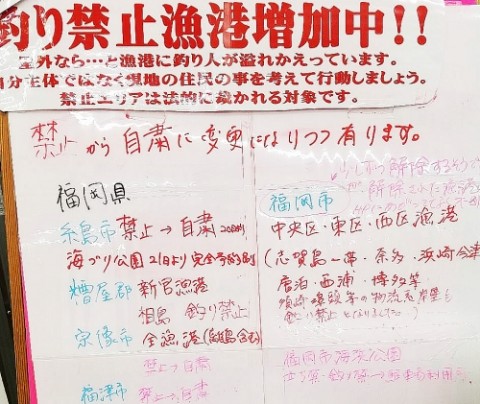 釣り禁止漁港増加中!!
屋外なら…と漁港に釣り人が溢れかえっています。
自分主体ではなく現地の住民の事を考えて行動しましょう。
禁止エリアは法的に裁かれる対象です。
禁止から自粛に変更になりつつ有ります。
福岡県
糸島市 禁止→自粛
海づり公園 21日より完全予約制
糟屋郡 新宮漁港
相島 釣り禁止
宗像市 全漁港(離島含む)
禁止→自粛
福津市 禁止→自粛
少しずつ解除
解除された漁港
福岡市
中央区・東区・西区漁港
(志賀島一帯・奈多・浜崎今津
唐泊・西浦・博多等
等の物流
釣り禁止となりました
福岡市海づり公園